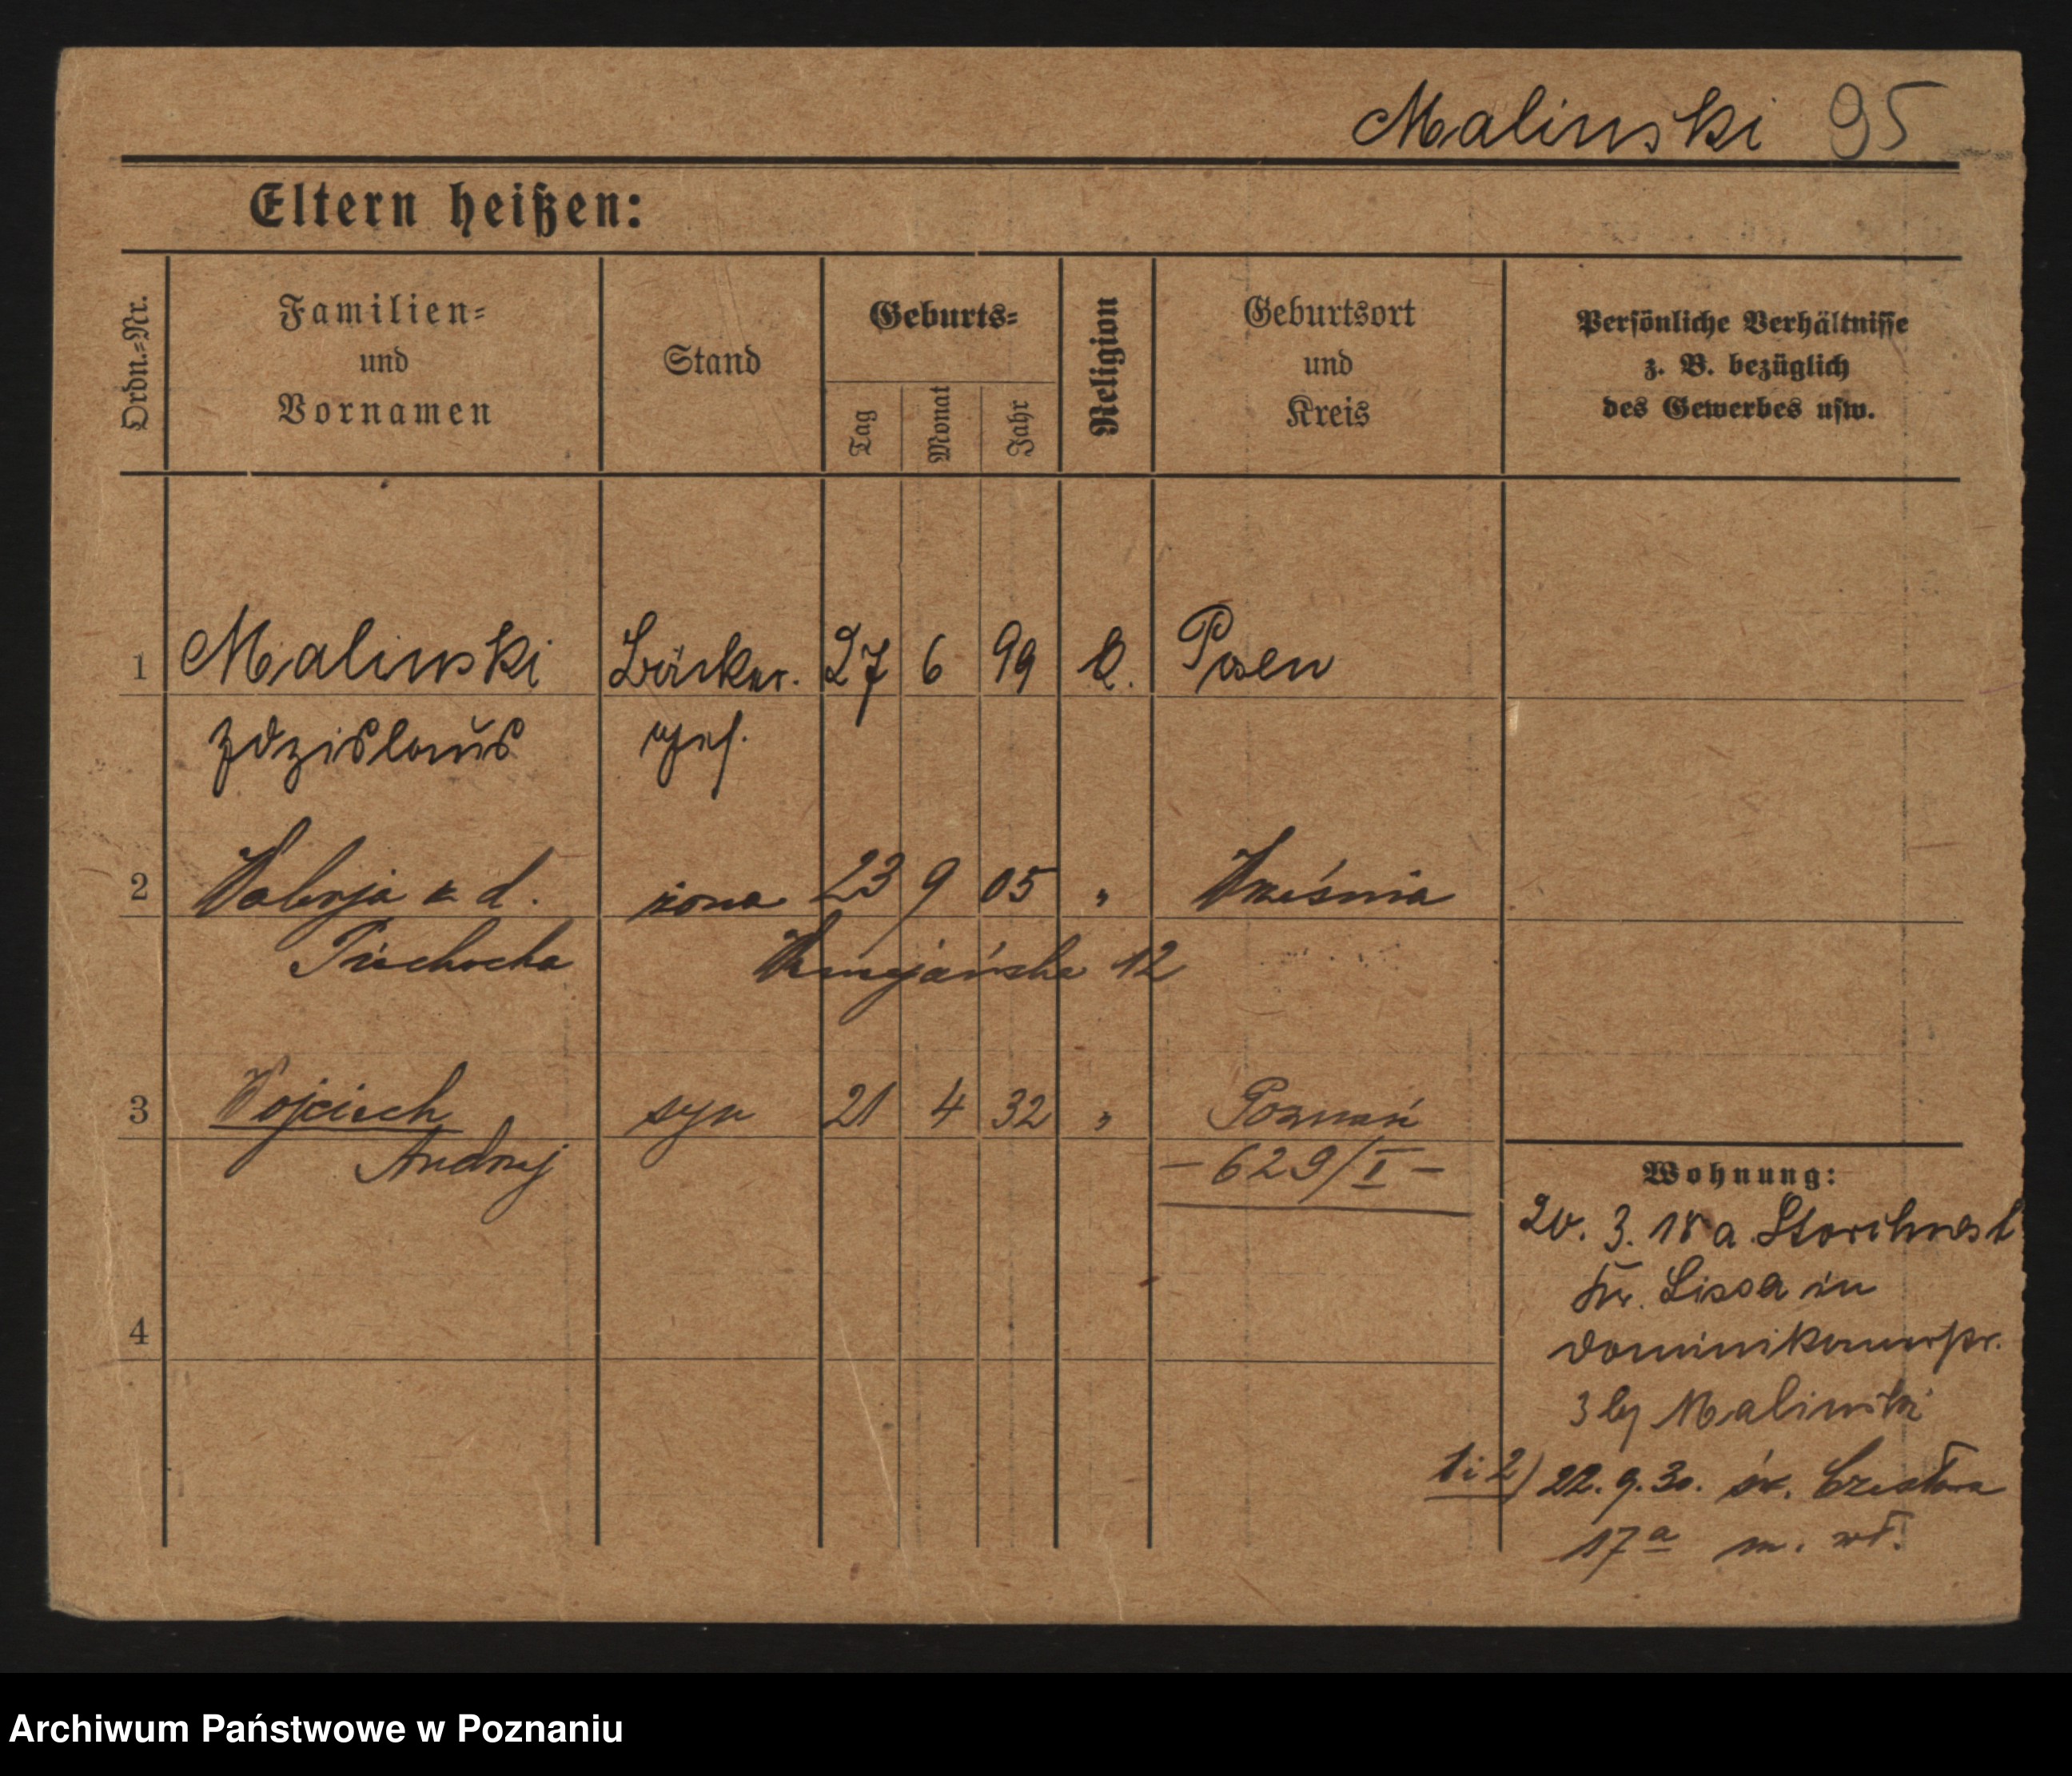 Malinski 95
Eltern heißen:
Ordn.-Nr.
Familien- und Vornamen
Stand
Geburts-
Tag
Monat
Jahr
Religion
Geburtsort und Kreis
Persönliche Verhältnisse z. B. bezüglich des Gewerbes usw.
1 Malinski Bäcker. 27 6 99 k. Posen
Zdzislaus ges.
2 Walerja z d. żona 23 9 05 " Września
Piechocka 12
3 Wojciech syn 21 4 32 " Poznań
Andrzej - 629/I -
4
Wohnung:
20. 3. 18 a. Storchnest
Kr. Lissa in
Dominikanerstr.
3 by Malinski
1 i 2) 22. 9. 30. św. Czesława
17a m. wł.
Archiwum Państwowe w Poznaniu